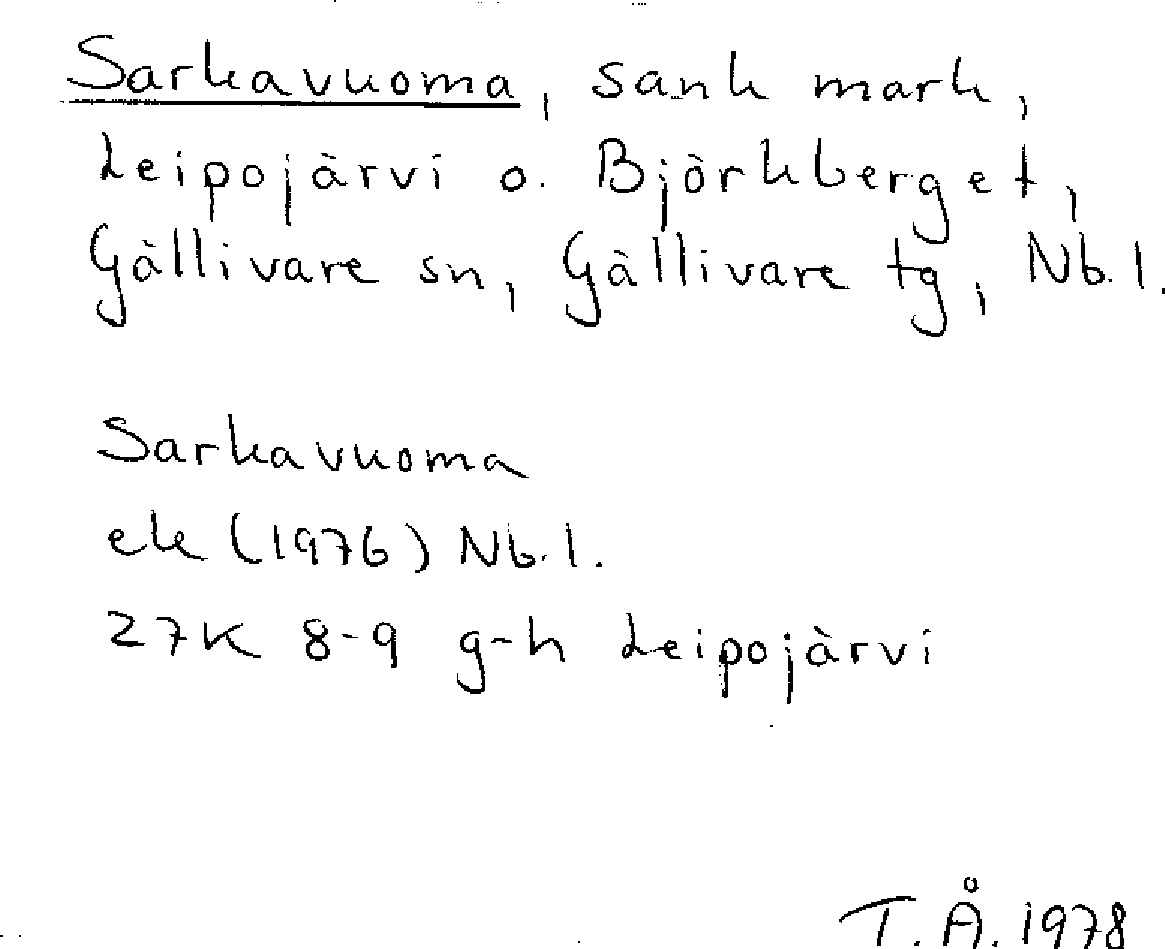 Sarkavuoma, sank mark,
Leipojärvi o. Björkberget,
Gällivare sn, Gällivare tg, Nb.l.
Sarkavuoma
ek (1976) Nb.l.
27K 8-9 g-h Leipojärvi
T.Å. 1978